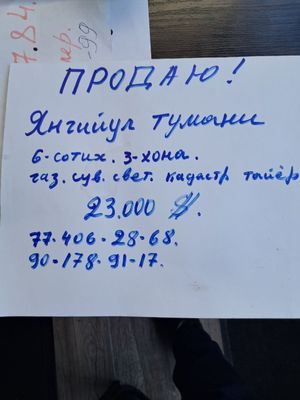 7.84.
-99
ПРОДАЮ!
Янгийул тумани
6-сотих. 3-хона.
газ. сув. свет. кадастр тайёр
23.000 $.
77-406-28-68.
90-178-91-17.